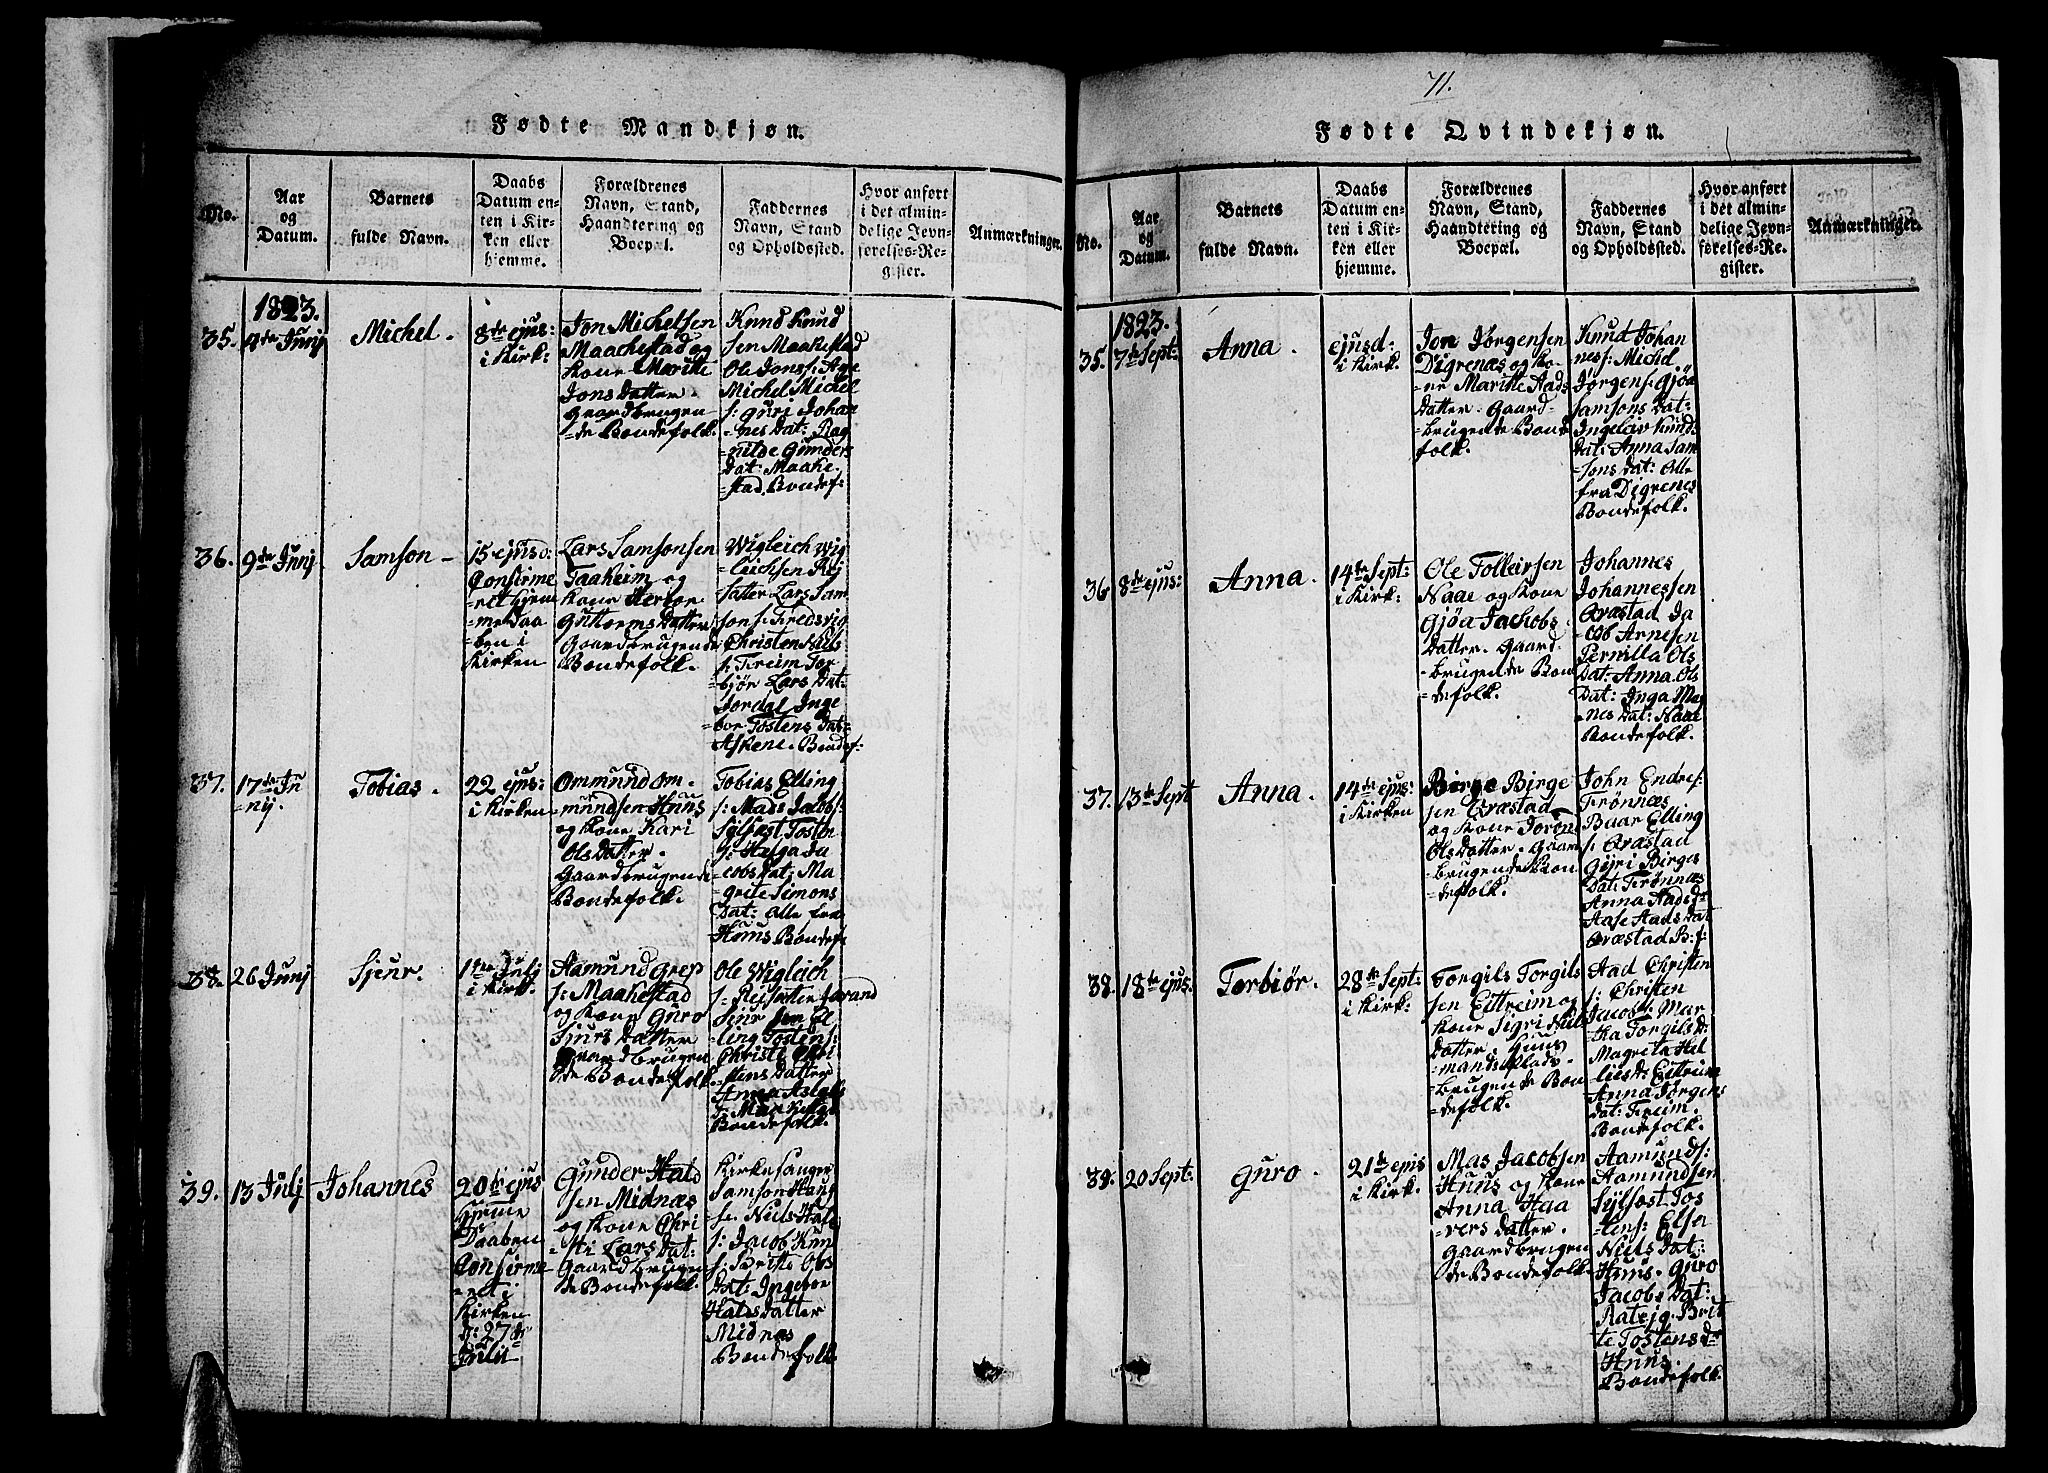 Fødte Mandkjøn.
No.
Aar
og
Datum.
Barnets
fulde Navn.
Daabs
Datum en-
ten i Kir-
ken eller
hjemme.
Forældrenes
Navn, Stand,
Haandtering og
Boepæl.
Faddernes
Navn, Stand
og Opholdssted.
Hvor anført
i det almin-
delige Jevn-
førelses-Re-
gister.
Anmærkninger.
1823.
35.
4de Junij
Michel.
8de ejus:
i Kirk:
Jon Michelsen
Maachestad og
Kone Maritte
Jons Datter.
Gaardbrugen
=de Bondefolk.
Knud Knud
sen Maakestad
Ole Jons s: Age
Michel Michel
s: Guri Johan
=nes Dat: Rag
=nilde Gunders
Dat: Maake
=stad. Bondef:
36.
9de Junij
Samson
15 ejusd:
Confirme
=ret hjem
me daa
=ben i
Kirken
Lars Samsonsen
Taaheim og
Kone Herbor
Guttorms Datter
Gaardbrugende
Bondefolk.
Wigleich Wig
=leichsen Rej
satter Lars Sam
son s: Fredsvig
Christen Nils
s: Freim Tor
=bjør Lars Dat:
Jordal Inge
=bor Tostens Dat:
Askene. Bondef:
37.
17de Ju
=nij.
Tobias.
22 ejus:
i Kirken
Ommund Om
=mundsen Huus
og Kone Kari
Ols Datter.
Gaardbrugende
Bondefolk.
Tobias Elling
s: Mads Jacobs:
Sylfast Tosten
s: Helga Ja
=cobs Dat: Ma
grite Simons
Dat: alle fra
Huus Bondef.
38.
26 Junij
Sjeur.
1ste Julij
i Kirk.
Aamund Grep
s: Maakestad
og Kone Guro
Sjurs Datter
Gaardbrugen
=de Bondefolk.
Ole Wigleich
s: Rejsatter
Sjur sen El
ling Tostens:
Christi Chri
=stens Datter
Anna Aslaks
D: Maakestad
Bondefolk.
39.
13 Julij
Johannes
20de ejus
hjeme
Daaben
Confirme
=ret i
Kirken
d: 27de
Julii
Gunder Hals
sen Midnæs
og Kone Chri
=sti Lars Dat:
Gaardbrugen
de Bondefolk.
Kirkesanger
Samson Haug
=se. Niels Halse
s: Jacob Knu
s: Britte Ols
Dat: Ingebor
Halsdatter
Midnæs
Bondefolk.
71.
Fødte Qvindekjøn.
No.
Aar
og
Datum.
Barnets
fulde Navn.
Daabs
Datum en-
ten i Kir-
ken eller
hjemme.
Forældrenes
Navn, Stand,
Haandtering og
Boepæl.
Faddernes
Navn, Stand
og Opholdssted.
Hvor anført
i det almin-
delige Jevn-
førelses-Re-
gister.
Anmærkninger.
1823.
35.
7de Sept:
Anna.
ejusd.
i Kirk.
Jon Jørgensen
Digrenæs og Ko-
=ne Maritte Aads
Datter. Gaard-
=brugende Bonde
folk.
Knud Johan
nes s: Michel
Jørgens: Gjøa
Samsons Dat:
Ingeleiv Knuds
Dat: Anna Sam
=sons Dat: alle
fra Digrenes
Bondefolk.
36
8de ejus:
Anna.
14de Sept:
i Kirk:
Ole Tolleivsen
Naae og Kone
Gjøa Jachobs
Datter. Gaard-
=brugende Bon
=defolk.
Johannes
Johannessen
Qvæstad Ja
=cob Arnesen
Pernilla Ols
Dat: Anna Ols
Dat: Inga Mag
=nes Dat: Naae
Bondefolk.
37.
13de Sept
Anna.
14de ejus:
i Kirken
Birge Birge
sen Qvæstad
og Kone Joren
Ols Datter. Gaar
=brugende Bon
=defolk.
John Endres:
Frønnæs
Baar Elling
s: Qvæstad
Gyri Birges
Dat: Frønnæs
Anna Aads d:
Aase Aads Dat
Qvæstad B: f:
38.
18de ejus.
Torbiør.
28de Sept:
i Kirk:
Torgils Torgils
sen Eittreim og
Kone Sigri Nils
Datter. Huus
=mandsplads-
=brugende Bon
=defolk.
Aad Christen
s: Christen
Jacobs: Mar
tha Torgils D:
Magreta Hel
lies D: Eitrum
Anna Jørgens
Dat: Freim.
Bondefolk.
39.
20 Sept:
Guro.
21de ejus
i Kirk.
Mas Jacobsen
Huus og Kone
Anna Haa
=vers Datter.
Gaardbrugen
de Bondefolk.
Aamunds:
Aamundsen
Sylfast Jos
=tens: Elsa
Niels Dat:
Huus. Guro
Jacobs Dat:
Ratejg. Brit
te Tostens d:
Huus.
Bondefolk.